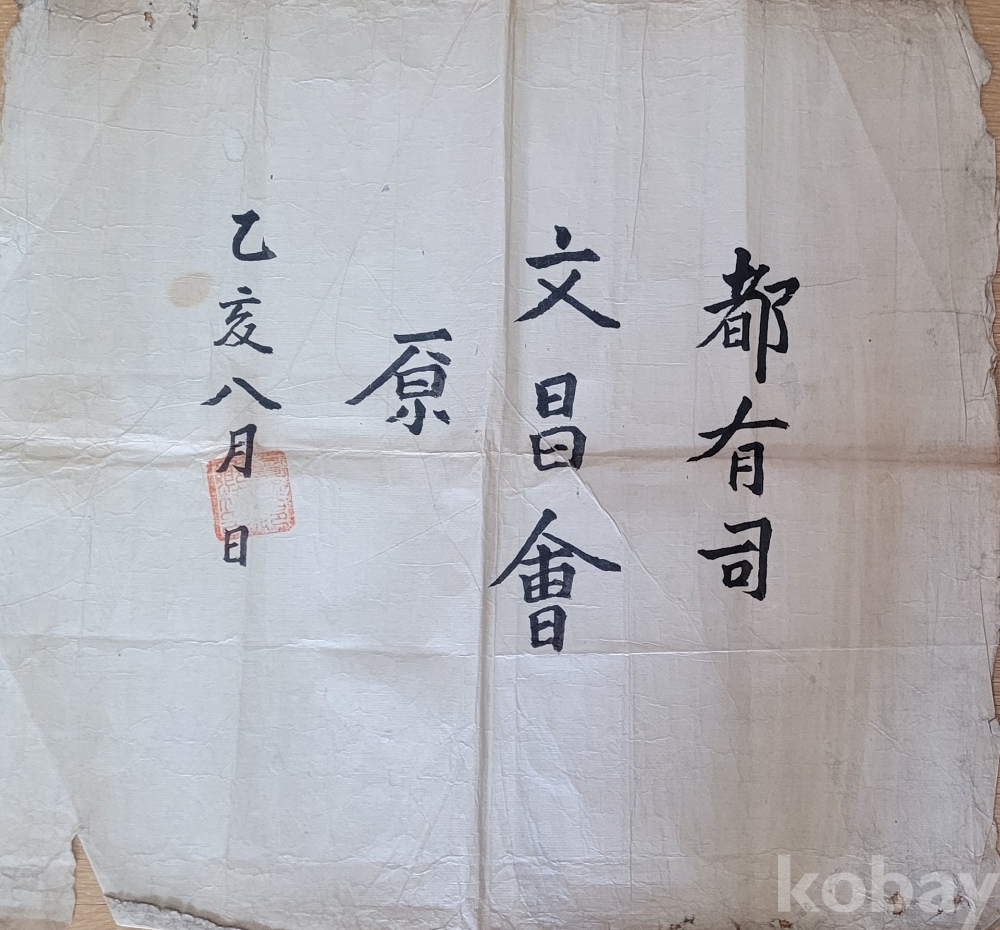 都有司
文昌會
原
乙亥八月 日
kobay